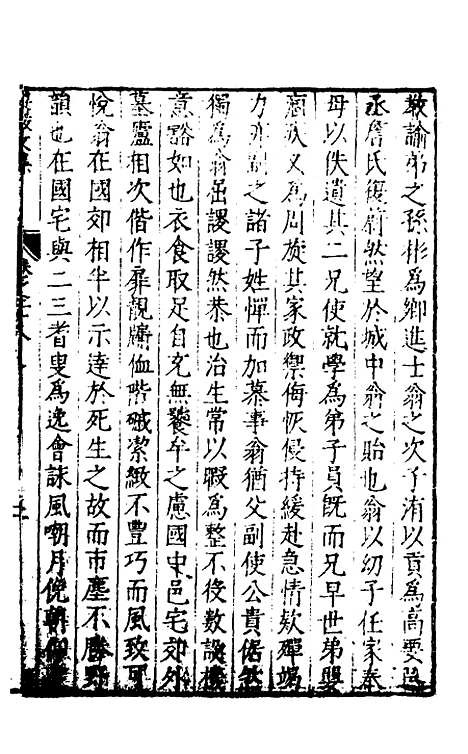 教諭弟之孫彬為鄉進士翁之次子洧以貢為高要
丞詹氏復蔚然望於城中翁之貽也翁以幼子任家奉
母以佚遺其二兄使就學為弟子員旣而兄早世弟嬰
痼疾又為周旋其家政禦侮恢侵持緩赴急情欵殫竭
力亦副之諸子姓憚而加慕事翁猶父副使公貴倨
獨為翁虽謖謖然恭也治生常以暇為整不役數
意豁如也衣食取足自充無饕牟之慮國中邑宅郊外
墓廬相次偕作扉覯牖恤階墄潔緻不豐巧而風致可
悅翁在國郊相半以示達於死生之故而市塵不勝野
韻也在國宅與二三耆叟為逸會詠風嘲月俛